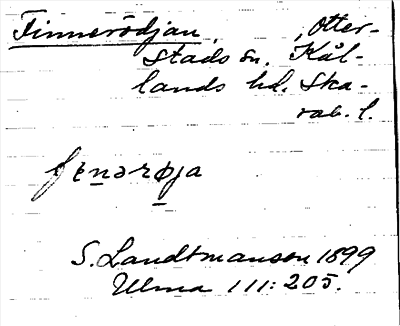 Finnerödjan, Otter-
stads sn. Kål-
lands hd. Ska-
rab. l.
fɛnərøja
S. Landtmanson 1899
Ulma 111:205.